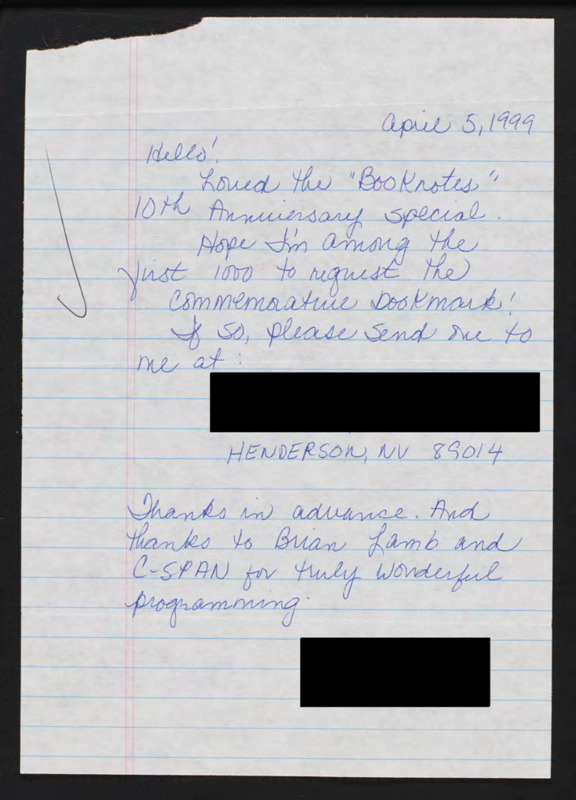 April 5, 1999
Hello!
Loved the "Booknotes"
10th Anniversary special.
Hope I'm among the
first 1000 to request the
commemorative bookmark!
If so, please send one to
me at:
HENDERSON, NV 89014
Thanks in advance. And
thanks to Brian Lamb and
C-SPAN for truly wonderful
programming.